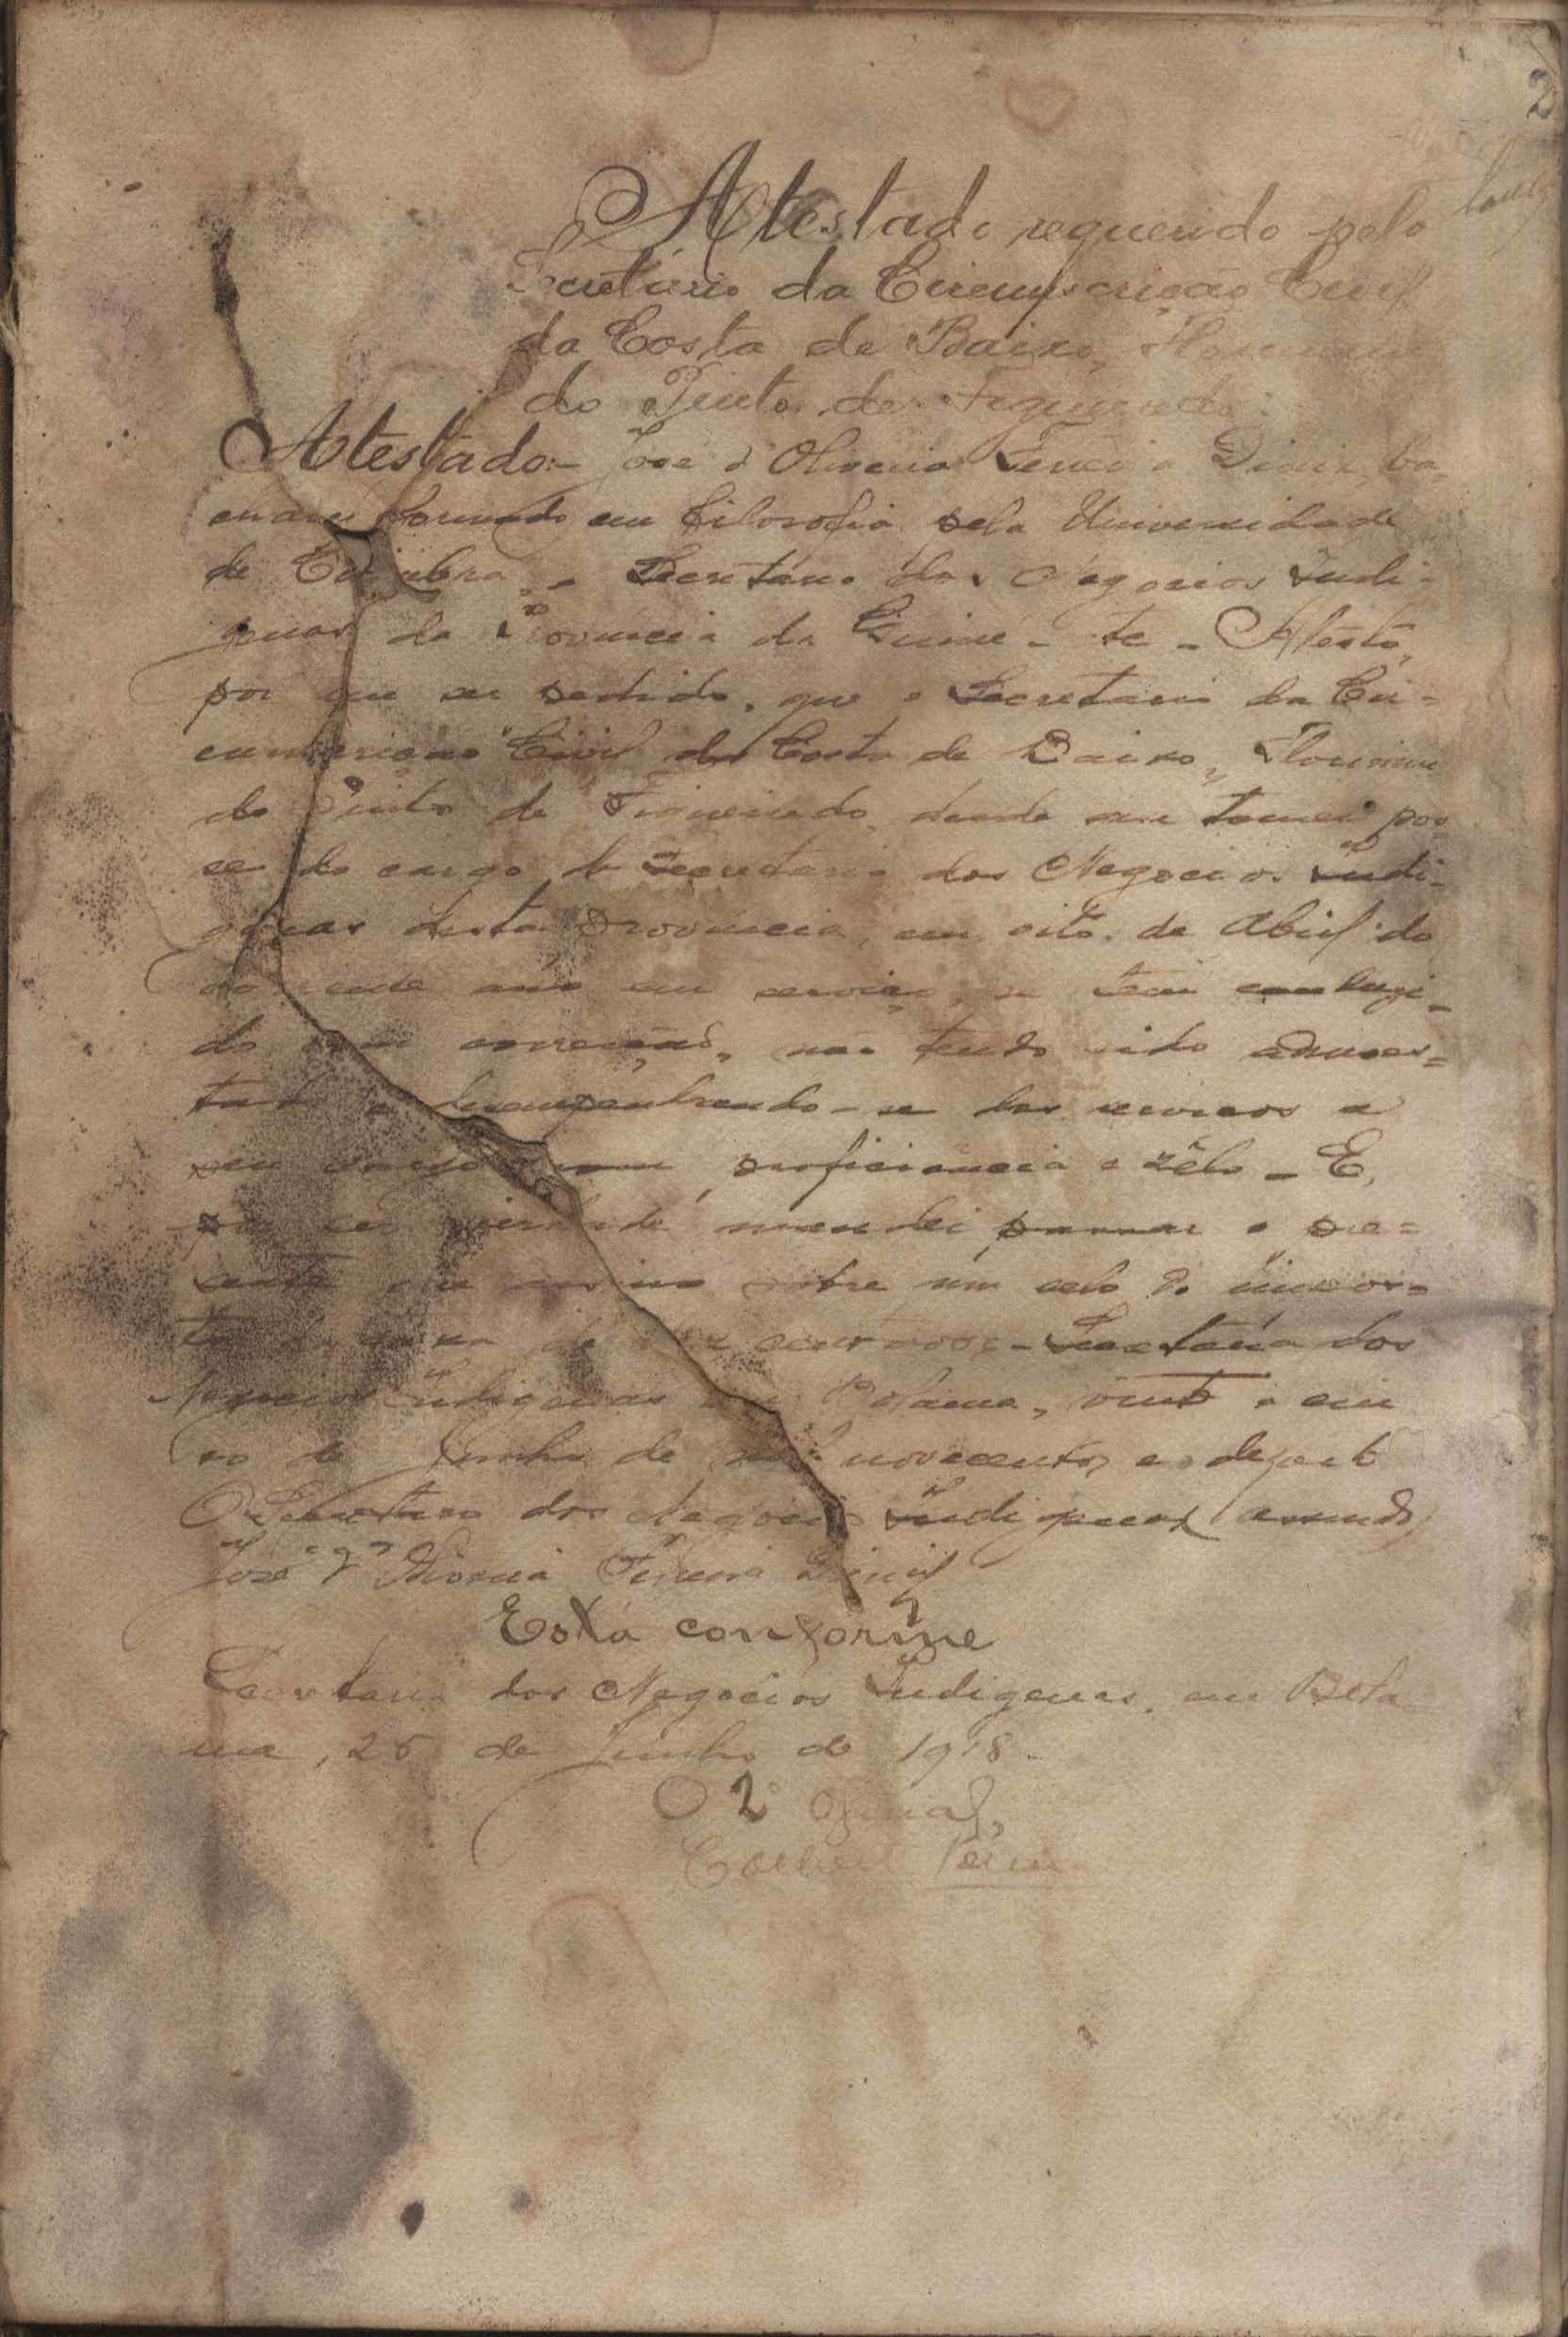 2
Atestado requerido pelo
Secretário da Circunscrição Civil
da Costa de Baixo,
do Pinto de Figueiredo
Atestado:- José d'Oliveira Ferreira Diniz, ba-
charel formado em Filosofia pela Universidade
de Coimbra, Secretário dos Negocios Indi-
genas da Provincia da Guiné - te - Atesto,
por me ser pedido, que o Secretario da Cir-
cunscrição Civil da Costa de Baixo,
do Pinto de Figueiredo, desde que tomei pos-
se do cargo de Secretario dos Negocios Indi-
genas desta Provincia, em oito de Abril do
corrente ano em serviço, se tem conduzi-
do com correção, não tendo sido
e desempenhando-se dos serviços a
seu cargo com proficiencia e zêlo - E,
por ser verdade mandei passar o pre-
sente que assino sobre um selo do impor-
te da taxa de centavos - Secretaria dos
Negocios Indigenas em Bolama, vinte e cin
co de Junho de mil novecentos e dezoito
O Secretario dos Negocios Indigenas
José d'Oliveira Ferreira Diniz
Está conforme
Secretaria dos Negócios Indigenas, em Bola
ma, 25 de Junho de 1918.
O 2º Oficial,